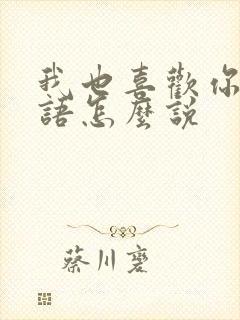 我也喜歡你
語怎麼說
蔡川襃